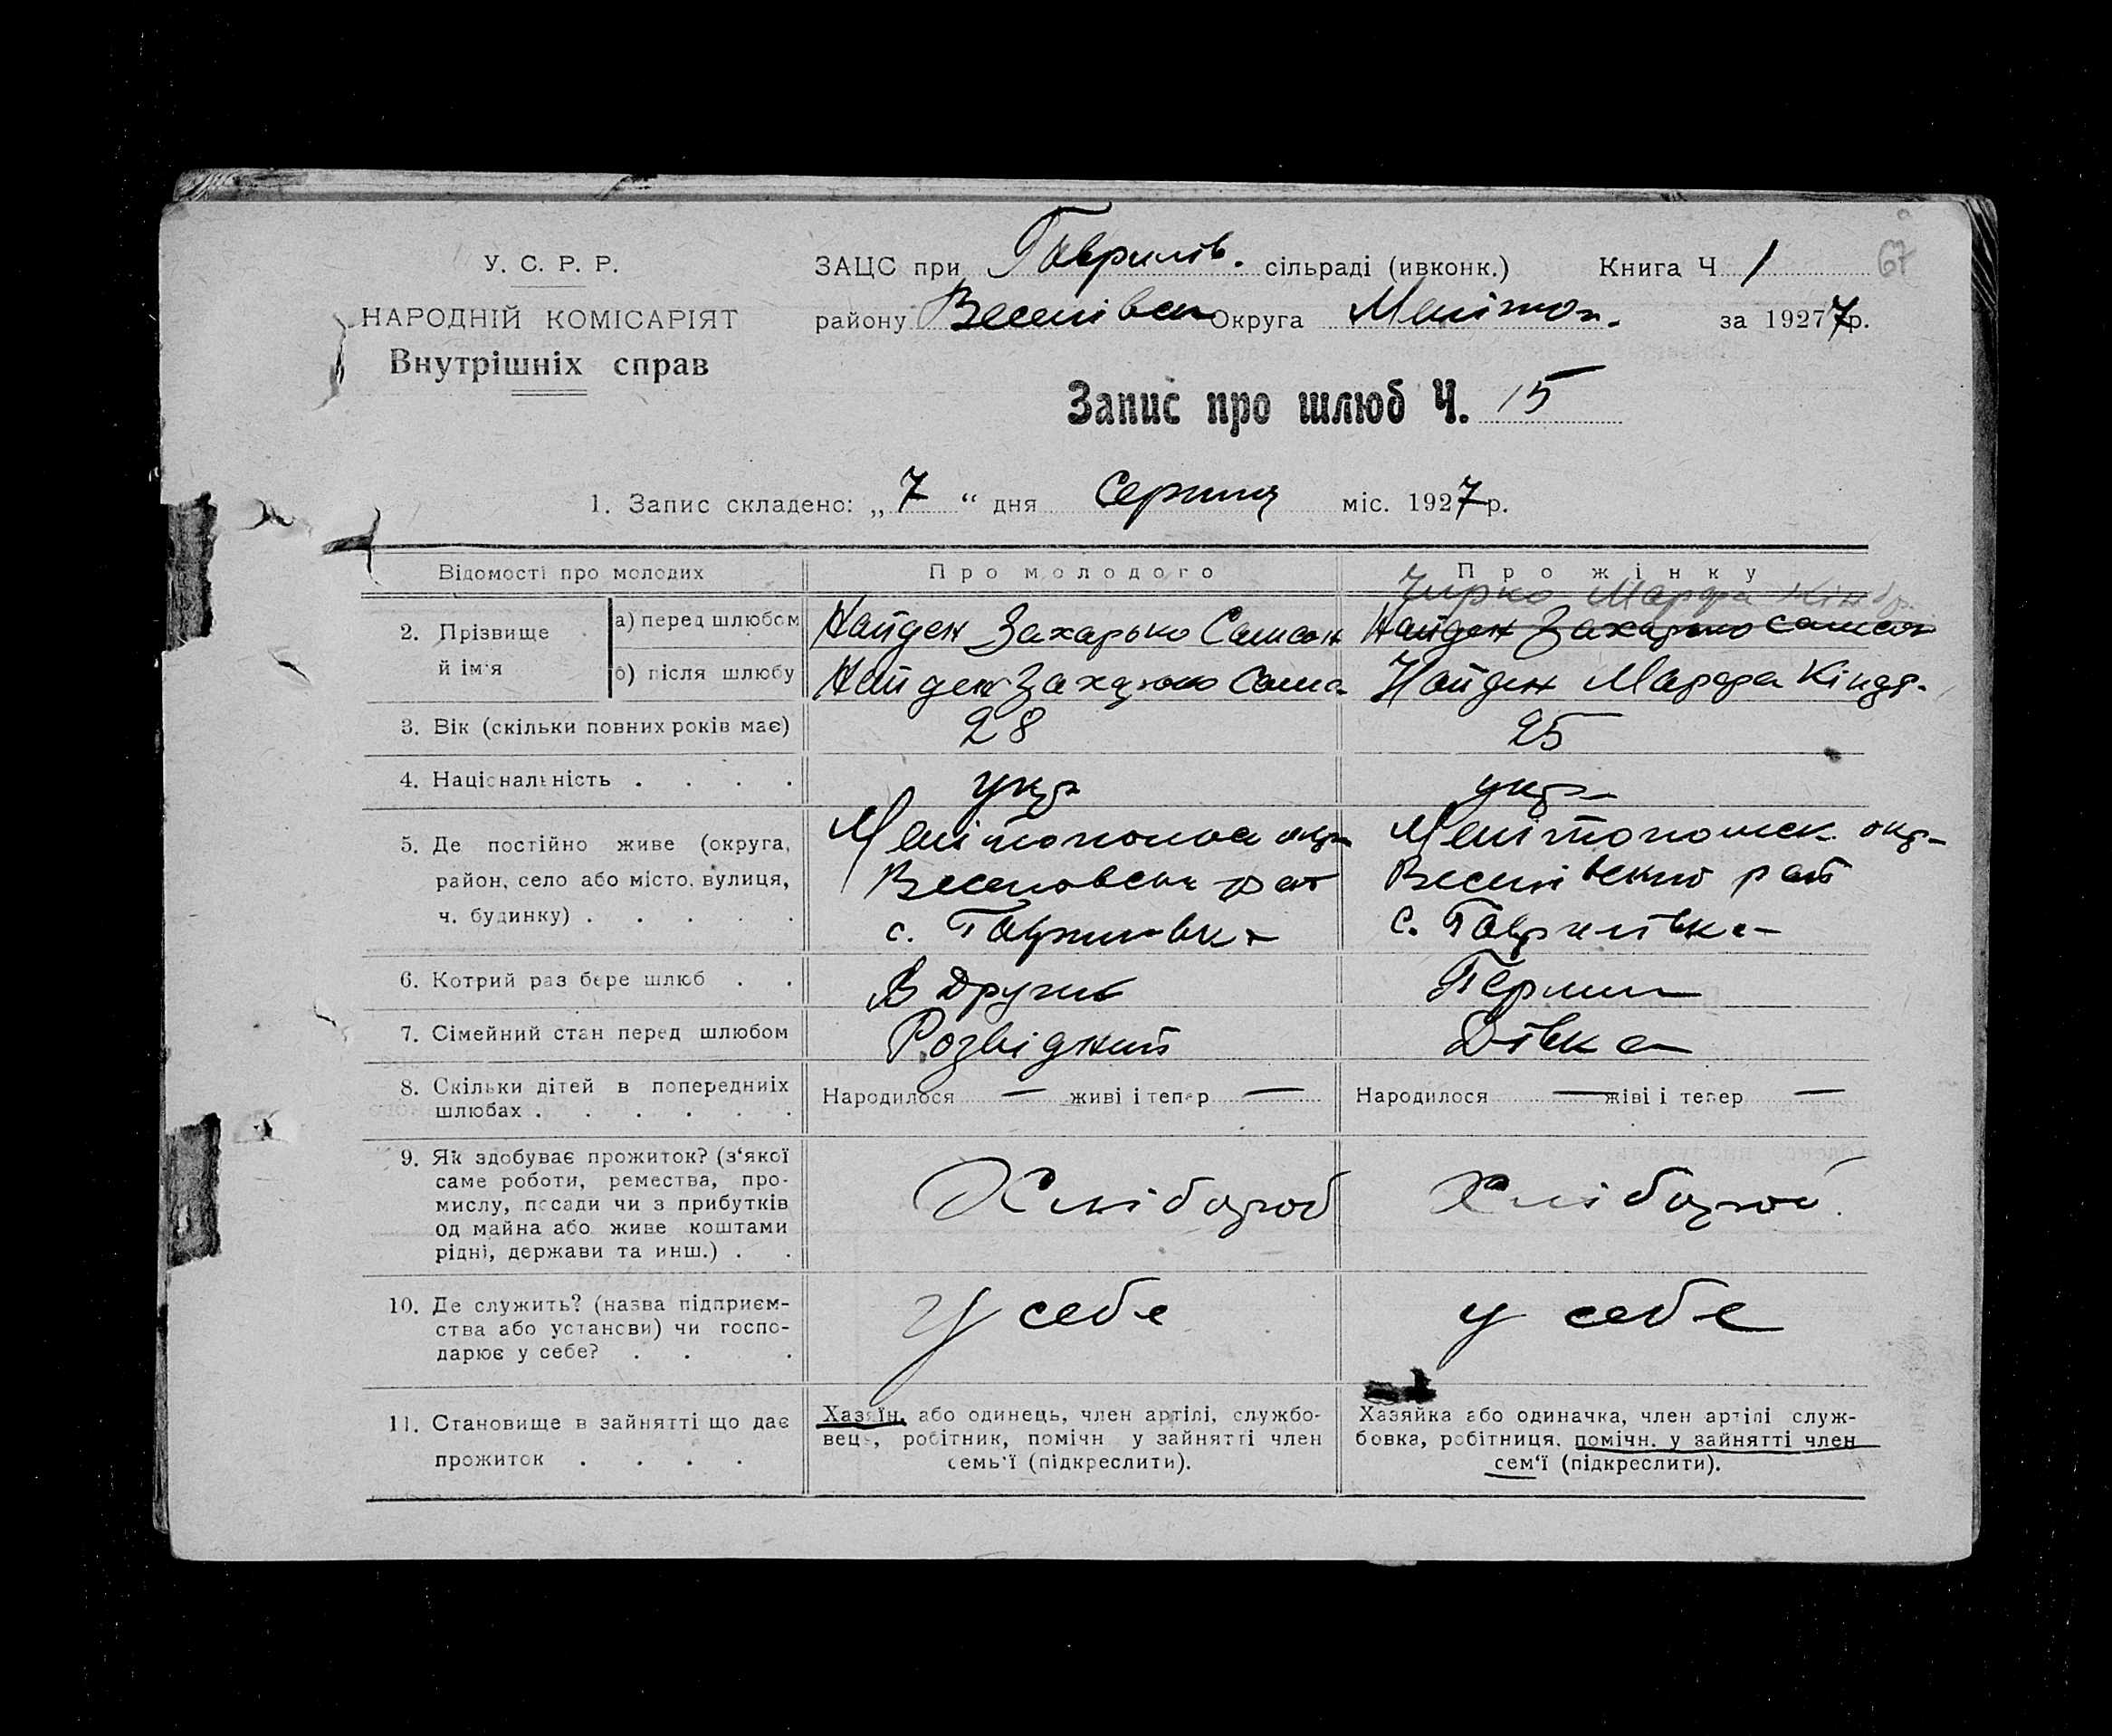 У. С. Р. Р.
НАРОДНІЙ КОМІСАРІЯТ
Внутрішніх справ
ЗАЦС при Гаврилів. сільраді (ивконк.) Книга Ч 1 67
району Веселівськ Округа Меліноп. за 19277р.
Запис про шлюб Ч. 15
1. Запис складено: „7“ дня Серпня міс. 1927р.
Відомості про молодих
Про молодого
Про жінку
2. Прізвище й ім'я
а) перед шлюбом
Найден Захарько Самсон
Чирко Марфа Кіндр.
Найден Захарько Самсон
б) після шлюбу
Найден Захарько Самс
Найден Марфа Кіндр.
3. Вік (скільки повних років має)
28
25
4. Національність . . . .
укр
укр
5. Де постійно живе (округа,
район, село або місто, вулиця,
ч. будинку) . . . . .
Мелітопольс окр
Веселовськ рай
с. Гаврилівка
Мелітопольськ. окр
Веселівського рай
с. Гаврилівка
6. Котрий раз бере шлюб . .
В другий
Перший
7. Сімейний стан перед шлюбом
Розвідний
Дівка
8. Скільки дітей в попередниіх
шлюбах . . . . . .
Народилося — живі і тепер —
Народилося — жіві і тепер —
9. Як здобуває прожиток? (з‘якої
саме роботи, ремества, про-
мислу, посади чи з прибутків
од майна або живе коштами
рідні, держави та инш.) . .
Хлібороб
Хлібороб.
10. Де служить? (назва підприєм-
ства або установи) чи госпо-
дарює у себе? . . .
У себе
у себе
11. Становище в зайнятті що дає
прожиток . . . .
Хазяїн, або одинець, член артілі, службо-
вець, робітник, помічн у зайнятті член
семь'ї (підкреслити).
Хазяйка або одиначка, член артілі служ-
бовка, робітниця, помічн. у зайнятті член
сем‘ї (підкреслити).